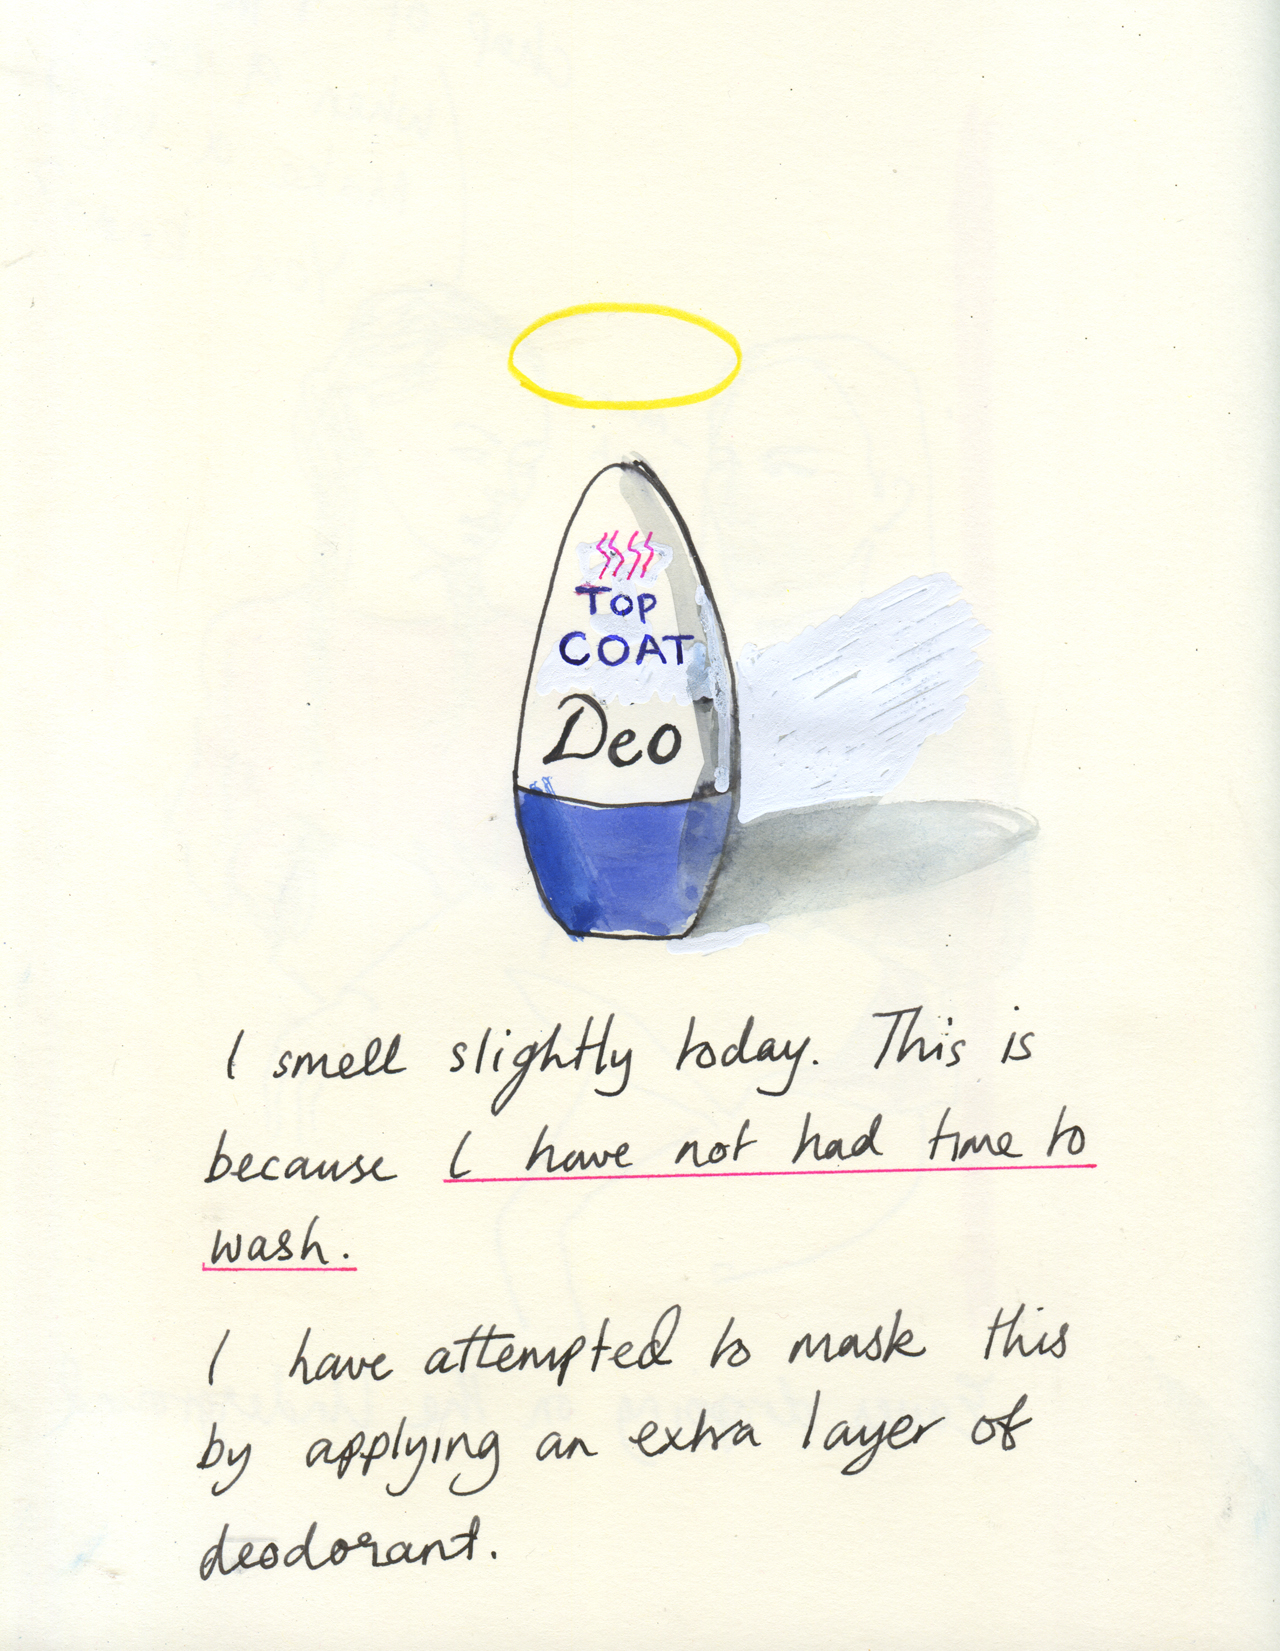 TOP
COAT
Deo
I smell slightly today. This is
because I have not had time to
wash.
I have attempted to mask this
by applying an extra layer of
deodorant.